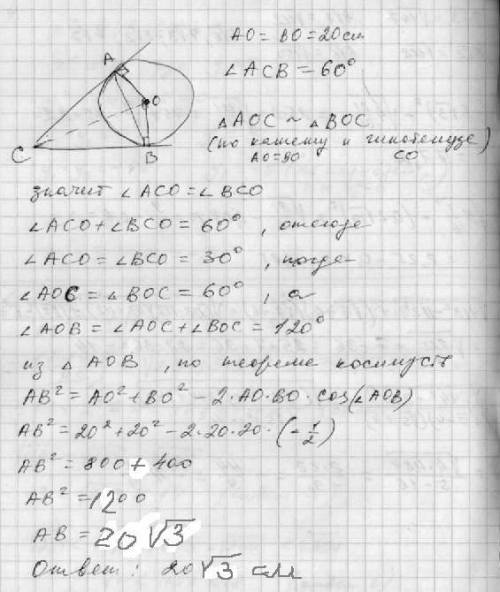 A
O
C
B
AO = BO = 20 cm
∠ACB = 60°
△AOC ~ △BOC
(по катету и гипотенузе)
AO = BO CO
значит ∠ACO = ∠BCO
∠ACO + ∠BCO = 60°, отсюда
∠ACO = ∠BCO = 30°, тогда
∠AOC = ∠BOC = 60°, а
∠AOB = ∠AOC + ∠BOC = 120°
из △AOB, по теореме косинусов
AB² = AO² + BO² - 2·AO·BO·cos(∠AOB)
AB² = 20² + 20² - 2·20·20·(-1/2)
AB² = 800 + 400
AB² = 1200
AB = 20√3
Ответ: 20√3 см